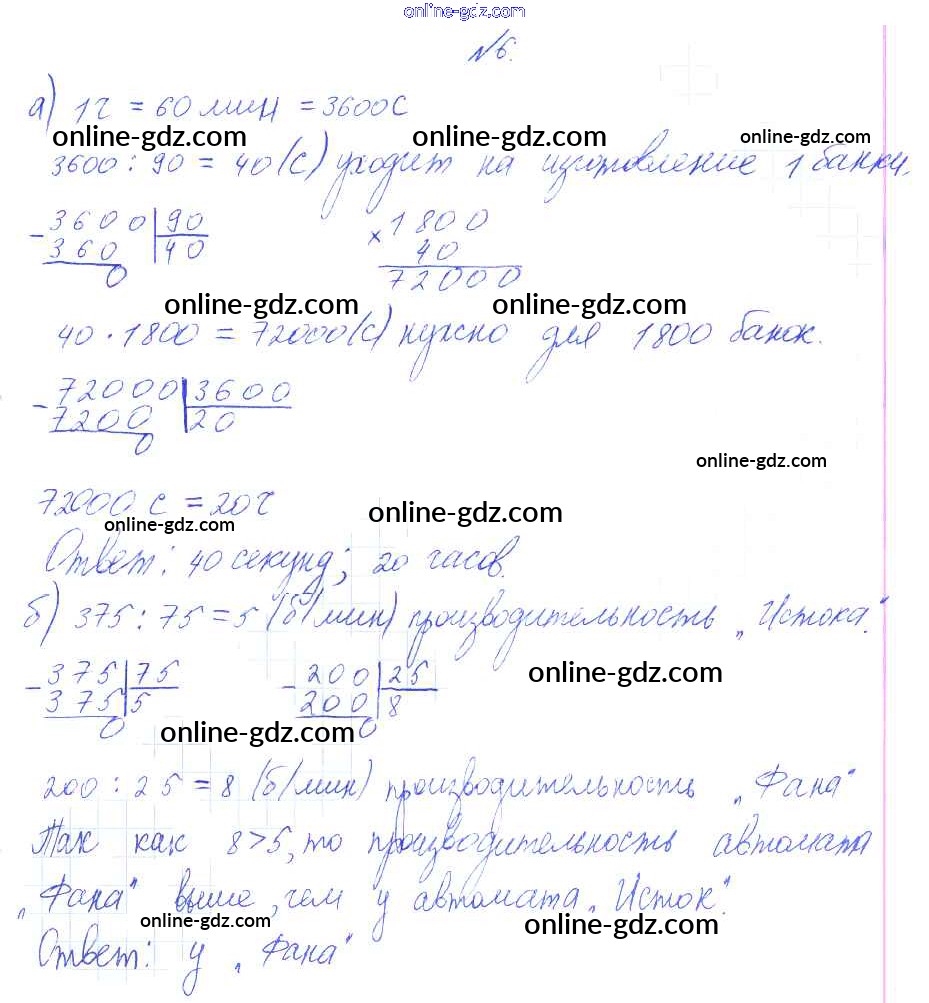 online-gdz.com
№6.
а) 1 ч = 60 мин = 3600 с
online-gdz.com online-gdz.com online-gdz.com
3600 : 90 = 40 (с) уходит на изготовление 1 банки.
- 3600 | 90 × 1800
360 | 40 40
0 72000
online-gdz.com online-gdz.com
40 · 1800 = 72000 (с) нужно для 1800 банок.
- 72000 | 3600
7200 | 20
0
online-gdz.com
72000 с = 20 ч
online-gdz.com online-gdz.com
Ответ: 40 секунд; 20 часов.
б) 375 : 75 = 5 (б/мин) производительность „Истока".
- 375 | 75 - 200 | 25 online-gdz.com
375 | 5 200 | 8
0 0
online-gdz.com
200 : 25 = 8 (б/мин) производительность „Фана"
Так как 8 > 5, то производительность автомата
„Фана" выше, чем у автомата „Исток".
online-gdz.com online-gdz.com
Ответ: у „Фана"